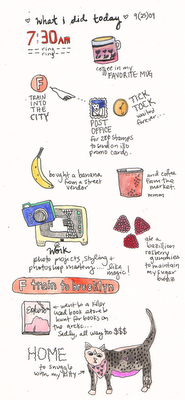 what i did today
9/25/09
7:30 AM
ring ring
coffee in my
FAVORITE MUG
F
TRAIN
INTO
THE
CITY
POST
OFFICE
for 28¢ stamps
to send out 110
promo cards.
TICK
TOCK
waited
forever...
bought a banana
from a street
vendor
and coffee
from the
market.
mmmm
Work
photo projects, styling +
photoshop mastery....
like
magic!
ate a
bazillion
rasberry
gummies
to maintain
my sugar
buzz
F train to brooklyn
went to a killer
used book store to
hunt for books on
the arctic...
Sadly, all way too $$$
HOME
to snuggle
with my kitty